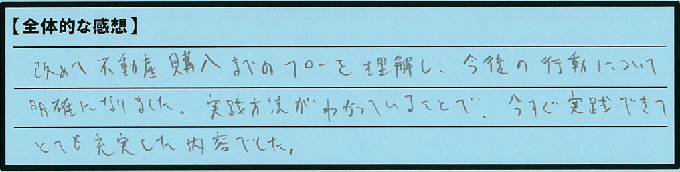 【全体的な感想】
改めて不動産購入までのフローを理解し、今後の行動について
明確になりました。実践方法がわかっていることで、今すぐ実践できて
とても充実した内容でした。